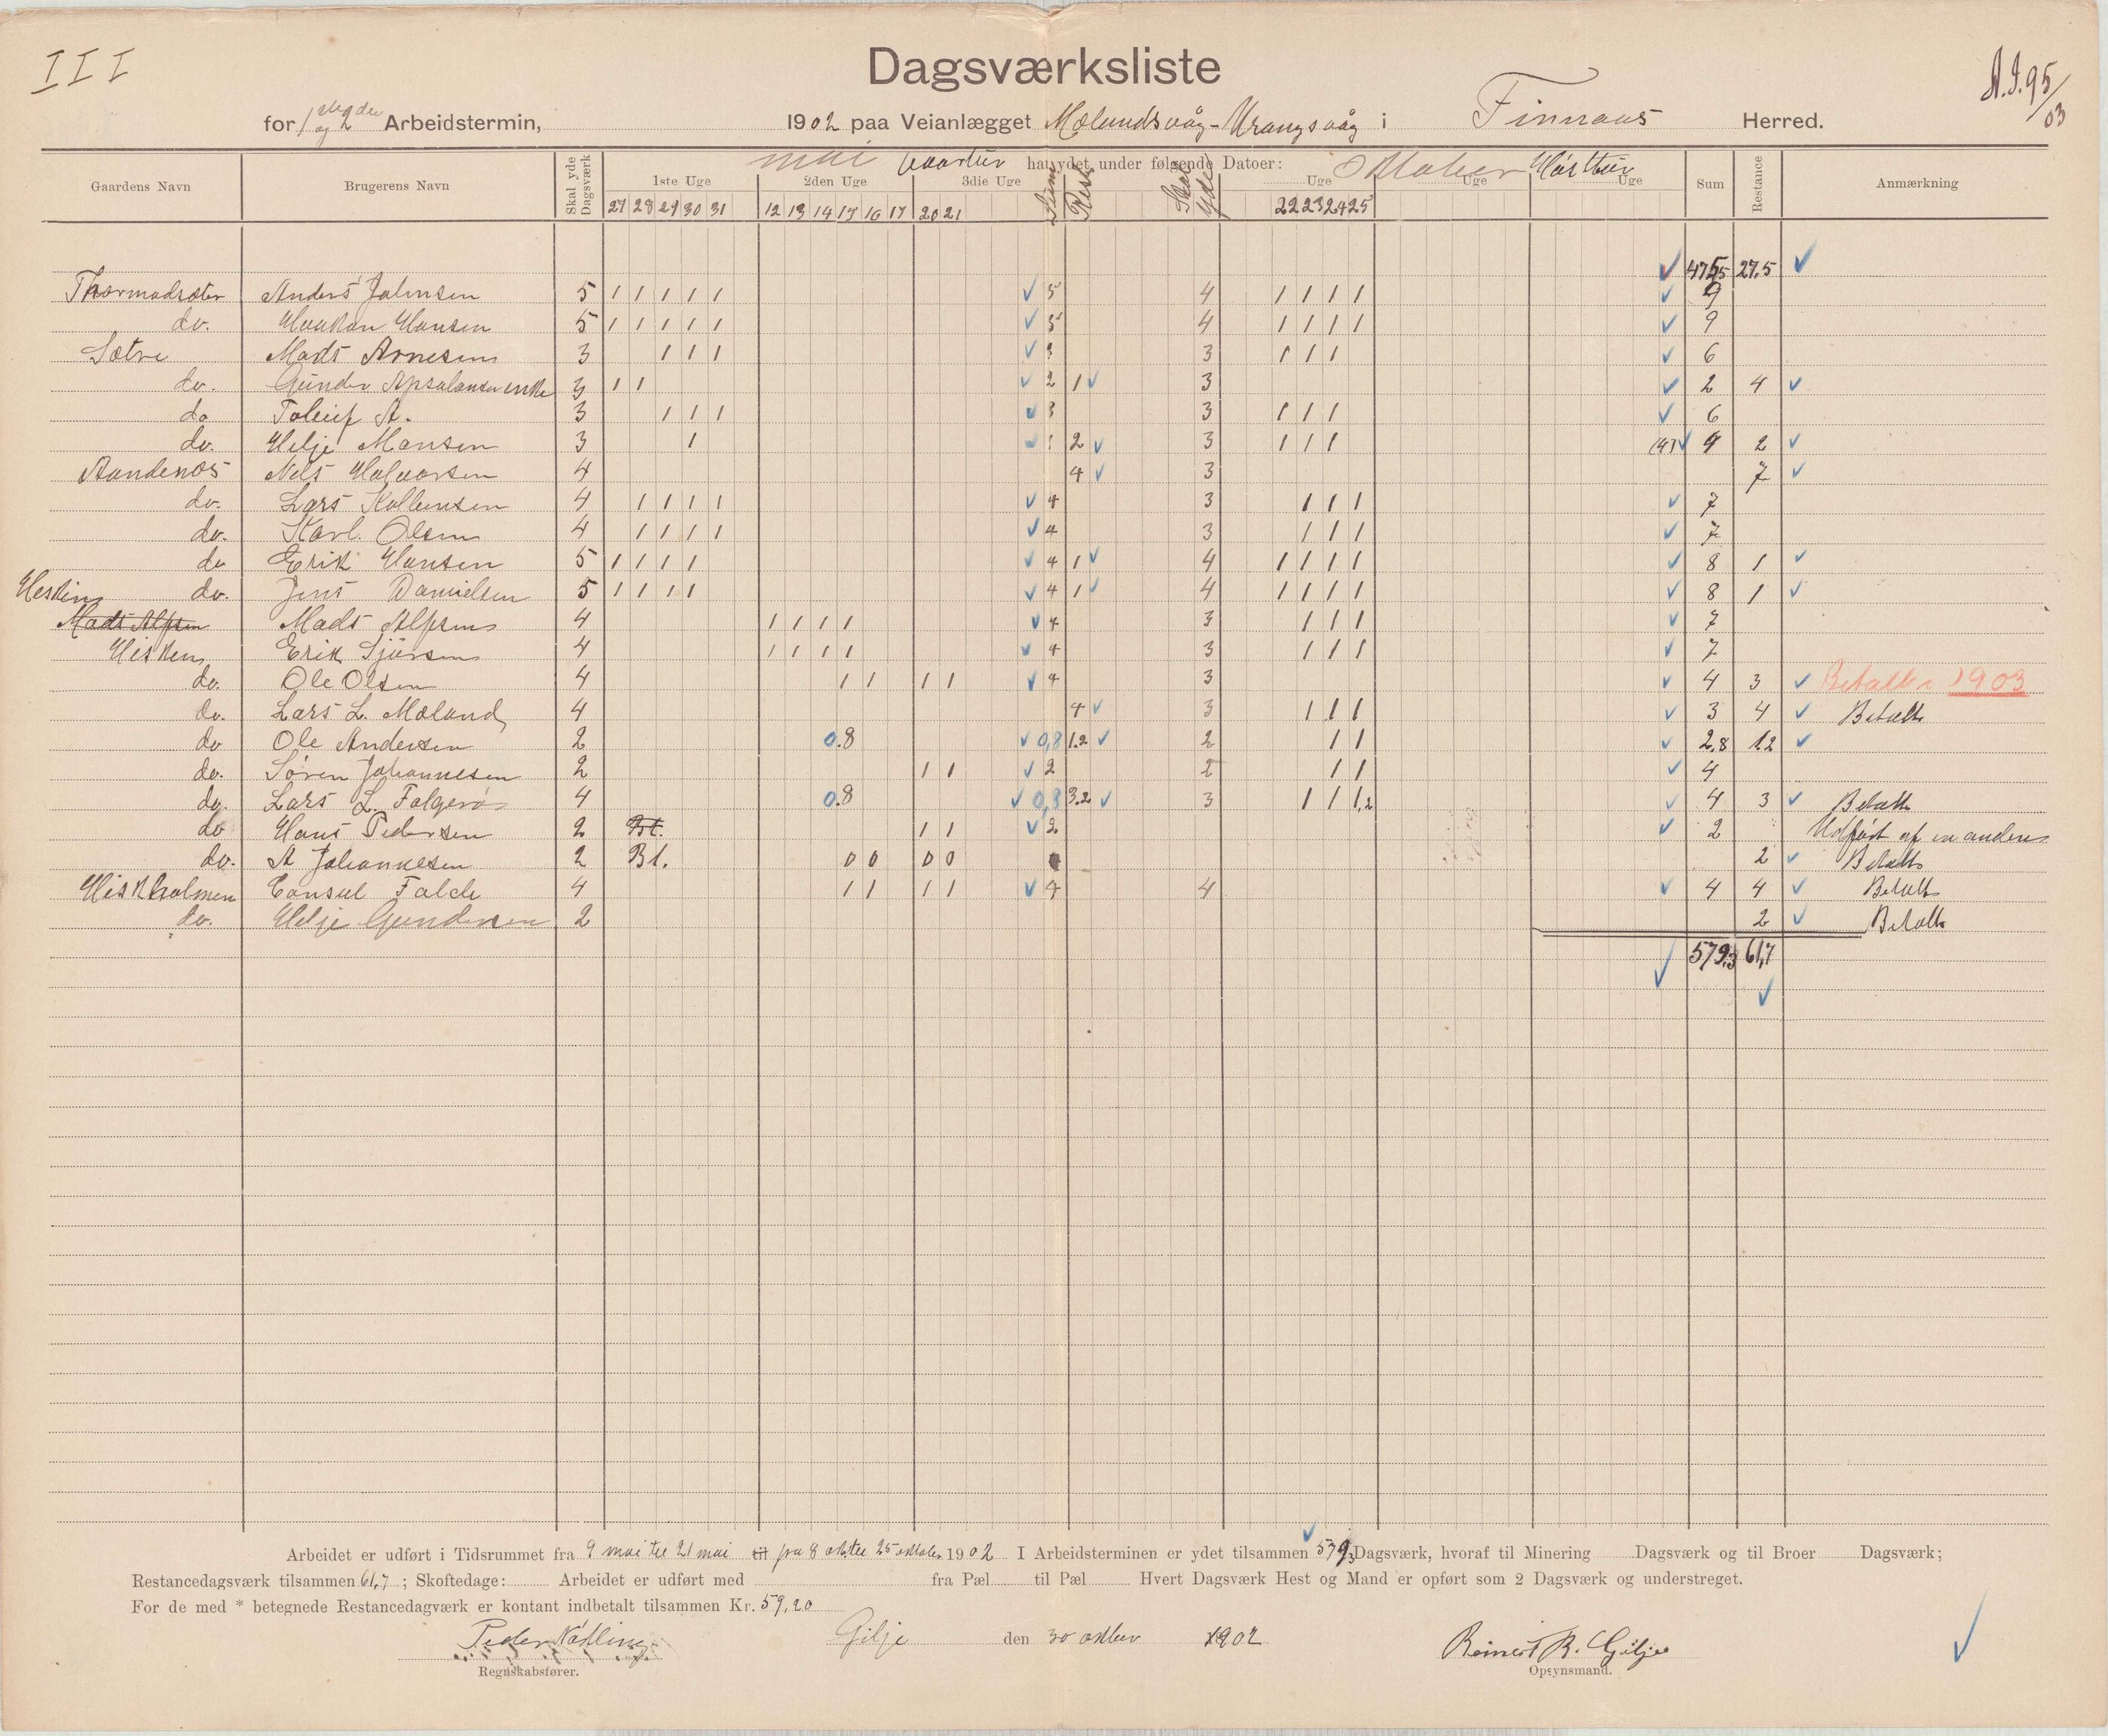 III
Dagsværksliste
A.J. 95/03
for 1ste og 2den Arbeidstermin, 1902 paa Veianlægget Mælandsvåg-Vrangsvåg i Finnaas Herred.
Gaardens Navn Brugerens Navn Skal yde Dagsværk mai Vaartur har ydet under følgende Datoer: Oktober Høsttur Sum Restance Anmærkning
1ste Uge 2den Uge 3die Uge Sum Rest Skal yde Uge Uge Uge
27 28 29 30 31 12 13 14 15 16 17 20 21 22 23 24 25
475,5 27,5
Thormodsæter Anders Johnsen 5 1 1 1 1 1 5 4 1 1 1 1 9
do. Haakon Hansen 5 1 1 1 1 1 5 4 1 1 1 1 9
Sætre Mads Arnesen 3 1 1 1 3 3 1 1 1 6
do. Gunder Apsalonsen enke 3 1 1 2 1 3 2 4
do Toleif A. 3 1 1 1 3 3 1 1 1 6
do. Helje Monsen 3 1 1 2 3 1 1 1 (4) 4 2
Aandenæs Nels Halvorsen 4 4 3 7
do. Lars Kolbensen 4 1 1 1 1 4 3 1 1 1 7
do. Karl Olsen 4 1 1 1 1 4 3 1 1 1 7
do Erik Hansen 5 1 1 1 1 4 1 4 1 1 1 1 8 1
Hesken do. Jens Danielsen 5 1 1 1 1 4 1 4 1 1 1 1 8 1
Mads Alfsen Mads Alfsen 4 1 1 1 1 4 3 1 1 1 7
Hisken Erik Sjursen 4 1 1 1 1 4 3 1 1 1 7
do. Ole Olsen 4 1 1 1 1 4 3 4 3 Betalt i 1903
do. Lars L. Mæland 4 4 3 1 1 1 3 4 Betalt
do Ole Andersen 2 0.8 0,8 1.2 2 1 1 2,8 1.2
do. Søren Johannesen 2 1 1 2 2 1 1 4
do. Lars L. Folgerø 4 0.8 0,8 3.2 3 1 1 1,2 4 3 Betalt
do Hans Pedersen 2 Bt. 1 1 2 2 Udført af en anden
do. A Johannesen 2 Bt. 0 0 0 0 2 Betalt
Hiskholmen Consul Falck 4 1 1 1 1 4 4 4 4 Betalt
do. Helje Gundersen 2 2 Betalt
579,3 61,7
Arbeidet er udført i Tidsrummet fra 9 mai til 21 mai til fra 8 okt til 25 oktober 1902 I Arbeidsterminen er ydet tilsammen 579,3 Dagsværk, hvoraf til Minering Dagsværk og til Broer Dagsværk;
Restancedagsværk tilsammen 61,7; Skoftedage: Arbeidet er udført med fra Pæl til Pæl Hvert Dagsværk Hest og Mand er opført som 2 Dagsværk og understreget.
For de med * betegnede Restancedagværk er kontant indbetalt tilsammen Kr. 59,20
Peder Køhling Gilje den 30 oktbr 1902 Reinert R. Gilje
Regnskabsfører. Opsynsmand.